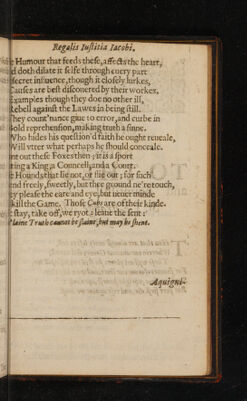 Regalis Iustitia Iacobi.
Humour that feeds these, affects the heart,
d doth dilate it selfe through euery part
secret influence, though it closely lurkes,
Causes are best discouered by their workes,
Examples though they doe no other ill,
Rebell against the Lawes in being still.
They count'nance giue to error, and curbe in
bold reprehension, making truth a sinne.
Who hides his question'd faith he ought reueale,
Will vtter what perhaps he should conceale.
nt out these Foxes then; it is a sport
ting a King; a Councell, and a Court.
e Hounds that lie not, or flie out; for such
end freely, sweetly, but thee ground ne're touch,
ey please the eare and eye, but neuer minde
kill the Game. Those Curs are of their kinde.
stay, take off, we ryot: leaue the sent:
Plaine Truth cannot be slaine, but may be shent.
Aquigni-